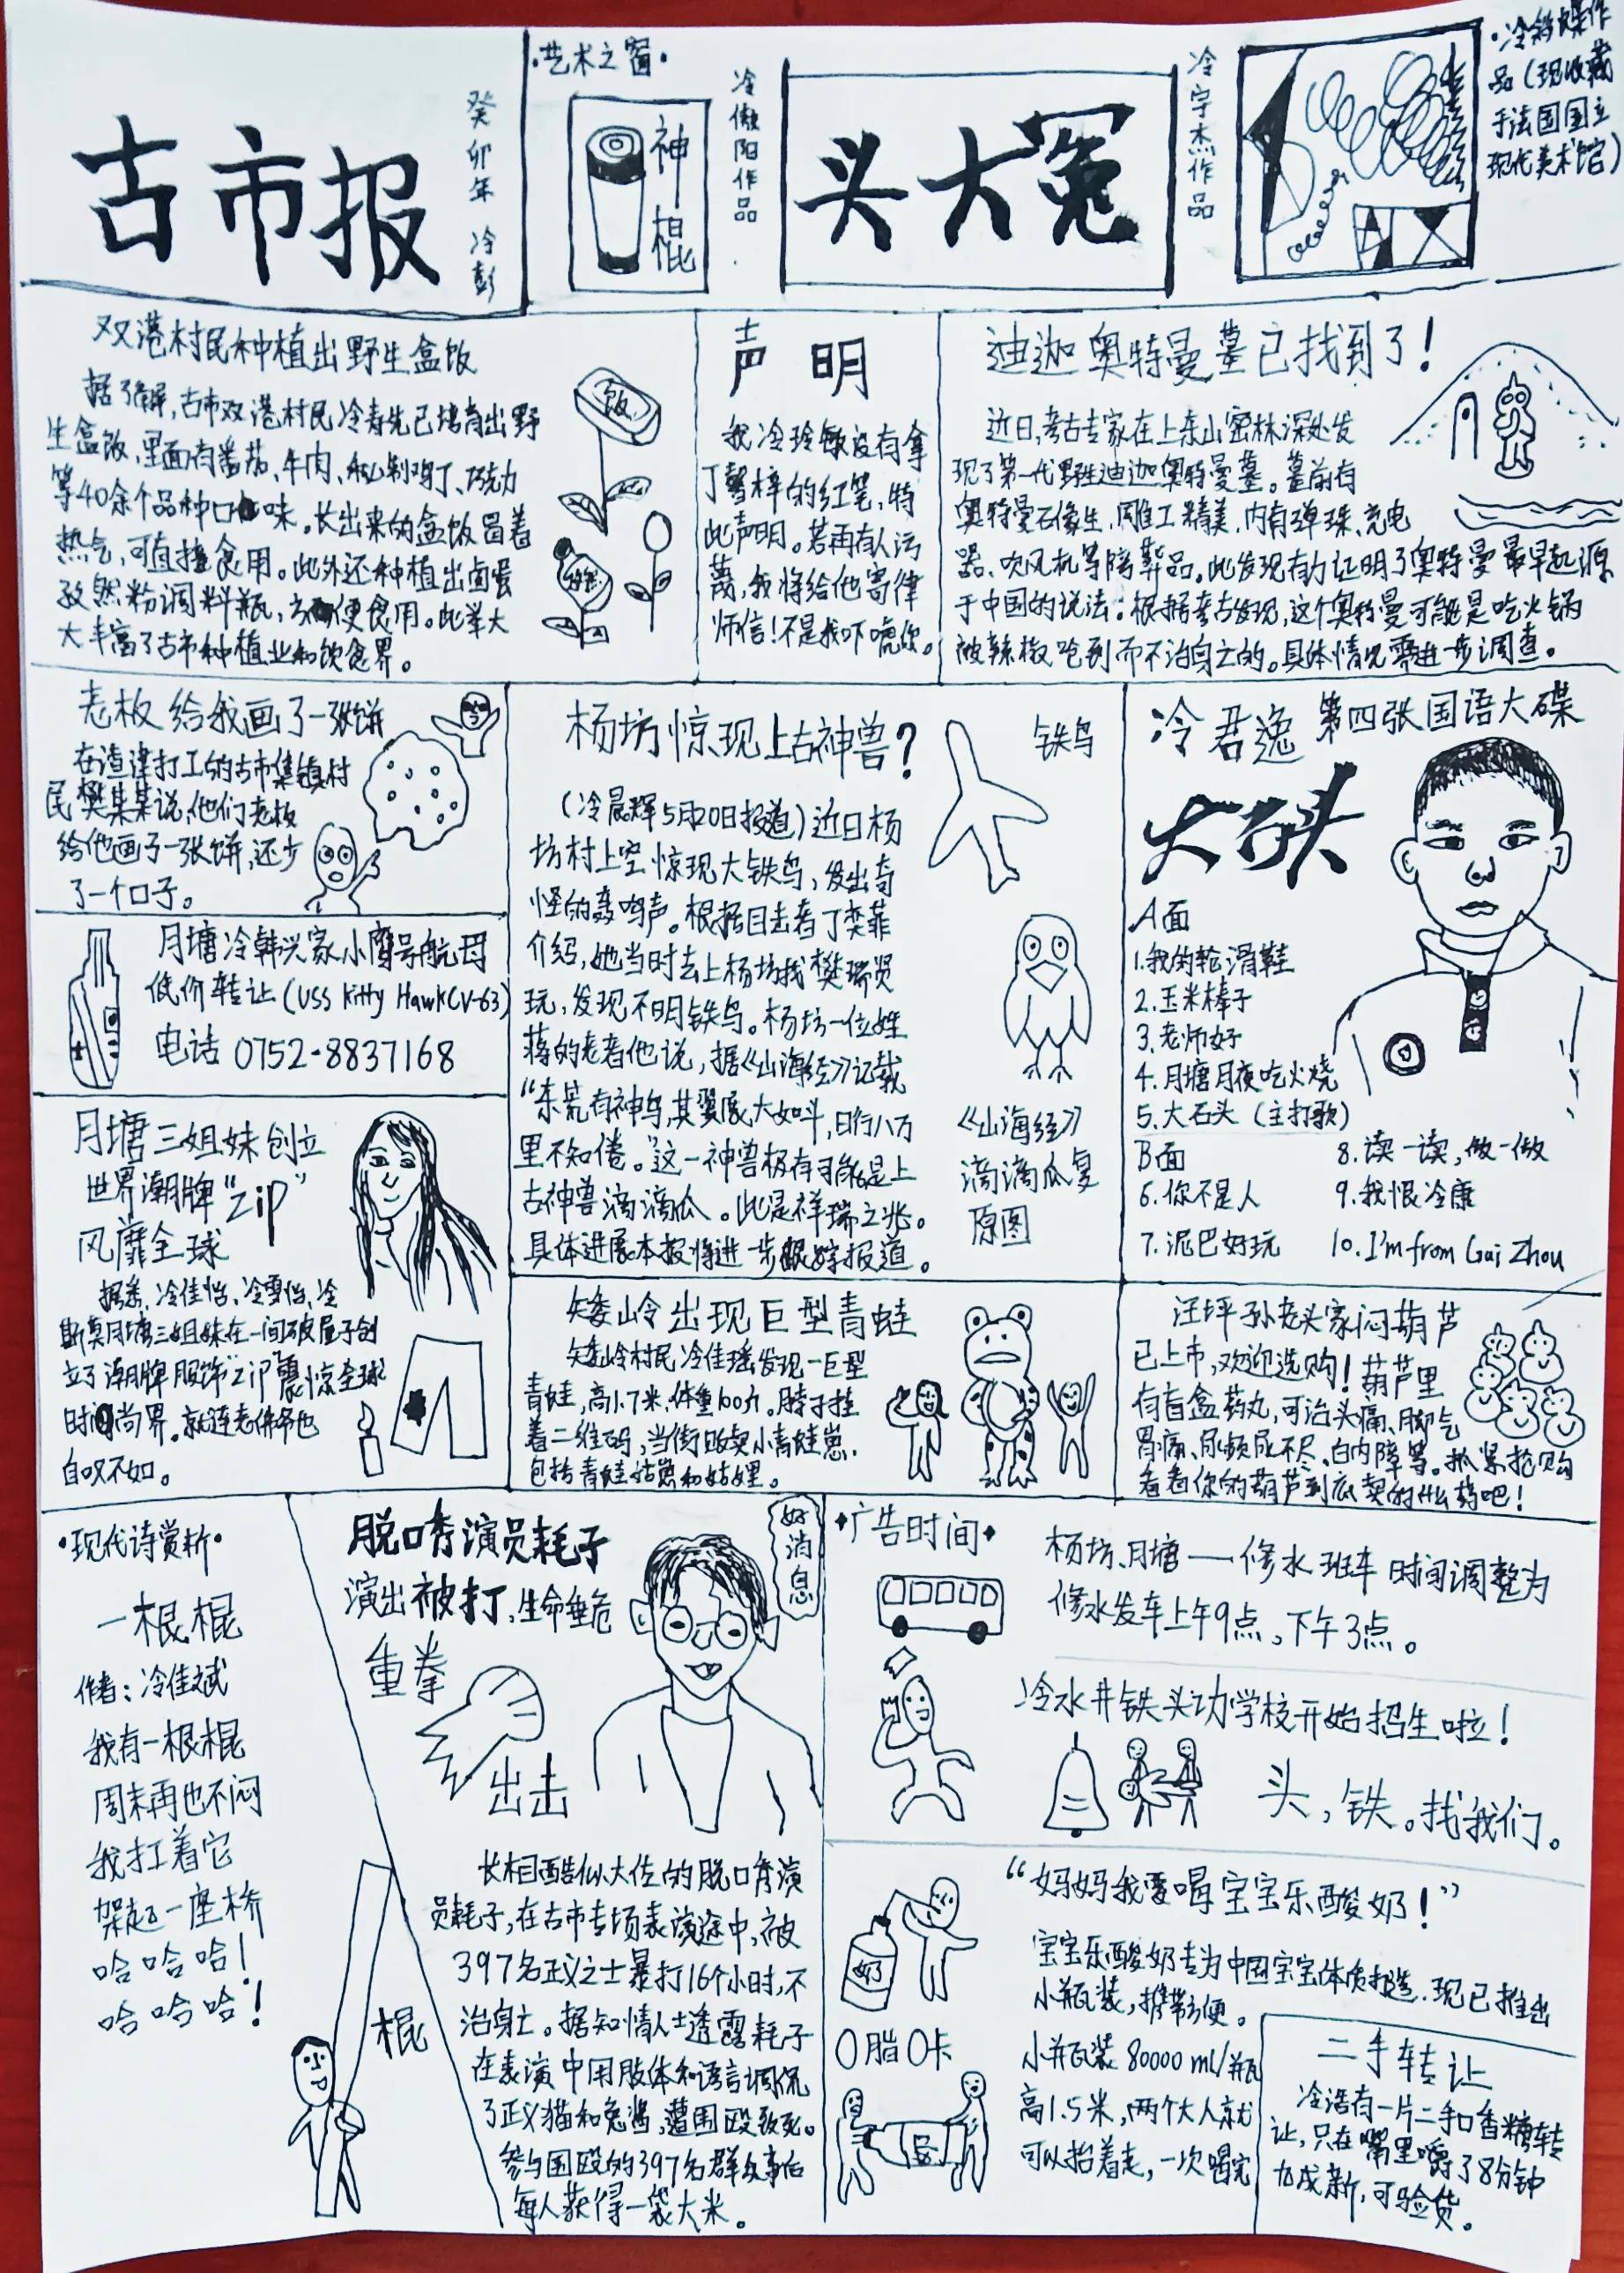 古市报
癸卯年 冷彭
·艺术之窗·
神棍
冷傲阳作品
头大冤
冷宇杰作品
·冷
作
品（现收藏
于法国国立
现代美术馆）
双港村民种植出野生盒饭
据了解，古市双港村民冷寿先已培育出野
生盒饭，里面有番茄、牛肉、秘制鸡丁、巧克力
等40余个品种口味。长出来的盒饭冒着
热气，可直接食用。此外还种植出卤蛋
孜然粉调料瓶，方便食用。此举大
大丰富了古市种植业和饮食界。
饭
孜然
声明
我冷玲敏没有拿
丁馨梓的红笔，特
此声明。若再有人污
蔑，我将给他寄律
师信！不是我吓唬你。
迪迦奥特曼墓已找到了！
近日，考古专家在上东山密林深处发
现了第一代野生迪迦奥特曼墓。墓前有
奥特曼石像生，雕工精美，内有弹珠、充电
器、吹风机等陪葬品。此发现有力证明了奥特曼最早起源
于中国的说法。根据考古发现，这个奥特曼可能是吃火锅
被辣椒呛到而不治身亡的。具体情况需进一步调查。
老板给我画了一张饼
在渣津打工的古市集镇村
民樊某某说，他们老板
给他画了一张饼，还少
了一个口子。
月塘冷韩兴家小鹰号航母
低价转让（USS Kitty Hawk CV-63）
电话 0752-8837168
月塘三姐妹创立
世界潮牌“Zip”
风靡全球
据悉，冷佳怡、冷雪怡、冷
斯莫月塘三姐妹在一间破屋子创
立了潮牌服饰“Zip”震惊全球
时尚界。就连老佛爷也
自叹不如。
杨坊惊现上古神兽？
（冷晨辉5月20日报道）近日杨
坊村上空惊现大铁鸟，发出奇
怪的轰鸣声。根据目击者丁奕菲
介绍，她当时去上杨坊找樊瑞贤
玩，发现不明铁鸟。杨坊一位姓
蒋的老者他说，据《山海经》记载
“东荒有神鸟，其翼展大如斗，日行八万
里不知倦。”这一神兽极有可能是上
古神兽滴滴瓜。此是祥瑞之兆。
具体进展本报将进一步跟踪报道。
铁鸟
《山海经》
滴滴瓜复
原图
冷君逸 第四张国语大碟
大石头
A面
1.我的轮滑鞋
2.玉米棒子
3.老师好
4.月塘月夜吃火烧
5.大石头（主打歌）
B面
6.你不是人
7.泥巴好玩
8.读一读，做一做
9.我恨冷康
10.I'm from Gui Zhou
矮岭出现巨型青蛙
矮岭村民冷佳瑶发现一巨型
青蛙，高1.7米，体重100斤。脖子挂
着二维码，当街贩卖小青蛙崽，
包括青蛙姑崽和姑娌。
汪坪孙老头家闷葫芦
已上市，欢迎选购！葫芦里
有盲盒药丸，可治头痛、脚气
胃痛、尿频尿不尽、白内障等。抓紧抢购
看看你的葫芦到底卖的什么药吧！
·现代诗赏析·
一根棍
作者：冷佳斌
我有一根棍
周末再也不闷
我扛着它
架起一座桥
哈哈哈！
哈哈哈！
棍
脱口秀演员耗子
演出被打，生命垂危
好消息
重拳
出击
长相酷似大佐的脱口秀演
员耗子，在古市专场表演途中，被
397名正义之士暴打16个小时，不
治身亡。据知情人士透露耗子
在表演中用肢体和语言调侃
了正义猫和兔酱，遭围殴致死。
参与围殴的397名群众事后
每人获得一袋大米。
·广告时间·
杨坊、月塘——修水班车时间调整为
修水发车上午9点，下午3点。
冷水井铁头功学校开始招生啦！
头，铁。找我们。
“妈妈我要喝宝宝乐酸奶！”
宝宝乐酸奶专为中国宝宝体质打造，现已推出
小瓶装，携带方便。
奶
0脂0卡
小瓶装 80000ml/瓶
高1.5米，两个大人就
可以抬着走，一次喝完
奶
二手转让
冷浩有一片二手口香糖转
让，只在嘴里嚼了8分钟
九成新，可验货。